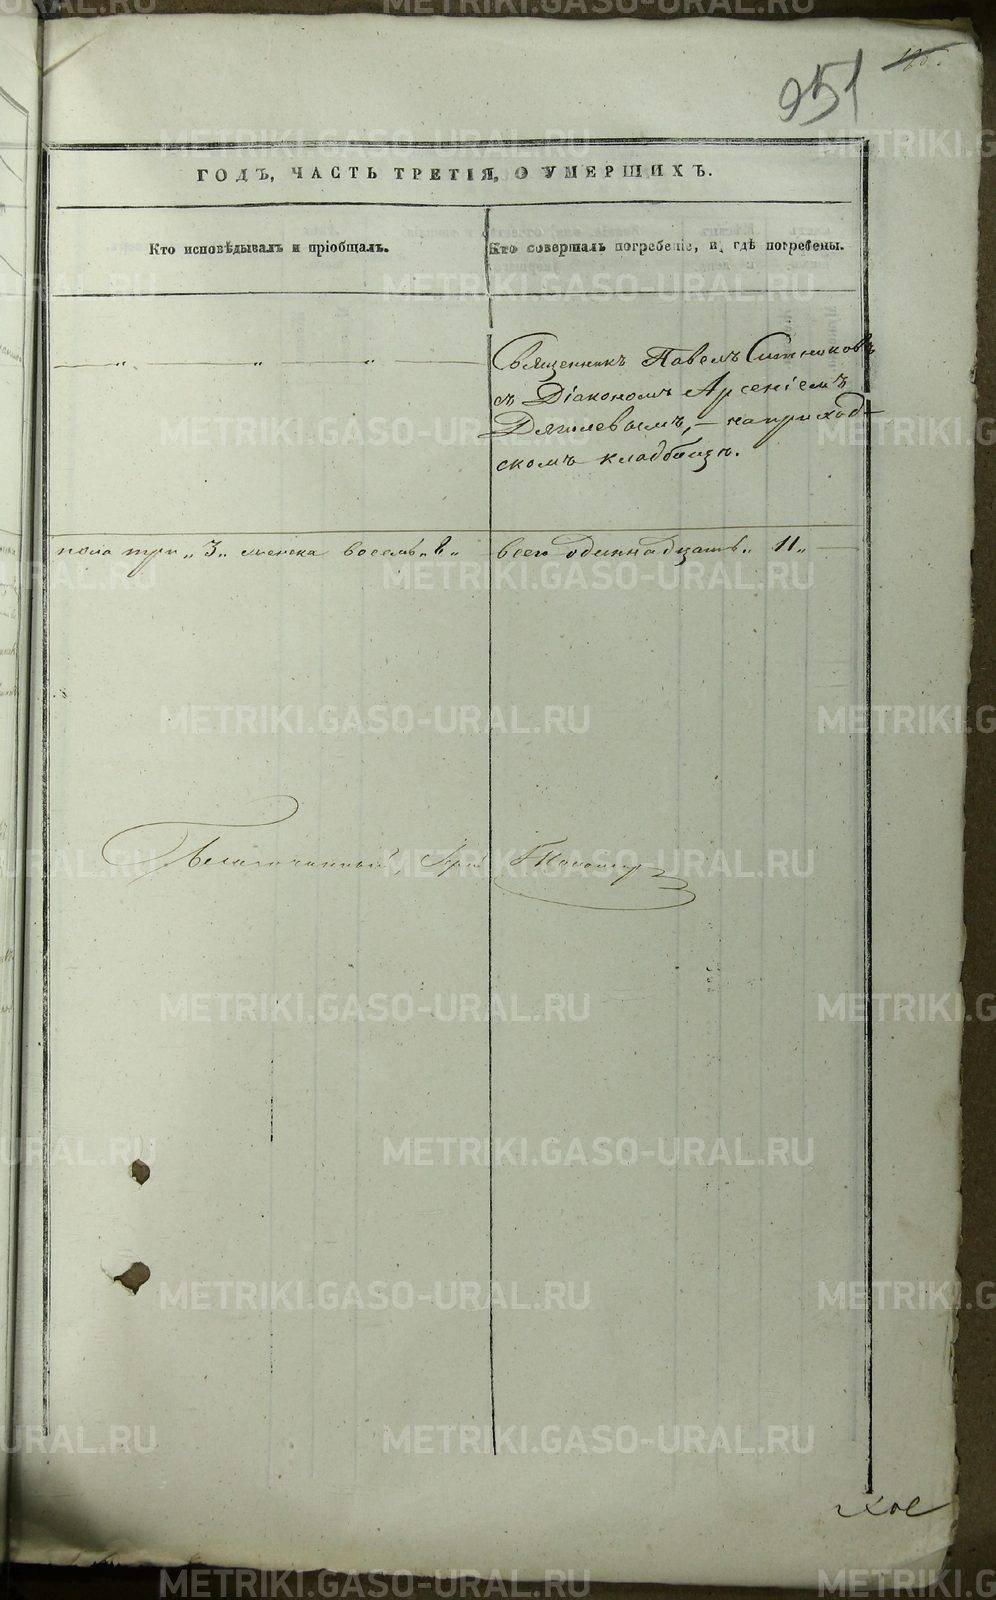 951
ГОДЪ, ЧАСТЬ ТРЕТІЯ, О УМЕРШИХЪ.
Кто исповѣдывалъ и пріобщалъ.
Кто совершалъ погребеніе, и гдѣ погребены.
Священникъ Павелъ Ситниковъ
съ Діакономъ Арсеніемъ
Дягилевымъ, – на приход-
скомъ кладбищѣ.
пола три „ 3 „ женска восемь „ 8 „ всего одиннадцать „ 11 „
Благочинный, Іерей
METRIKI.GASO-URAL.RU